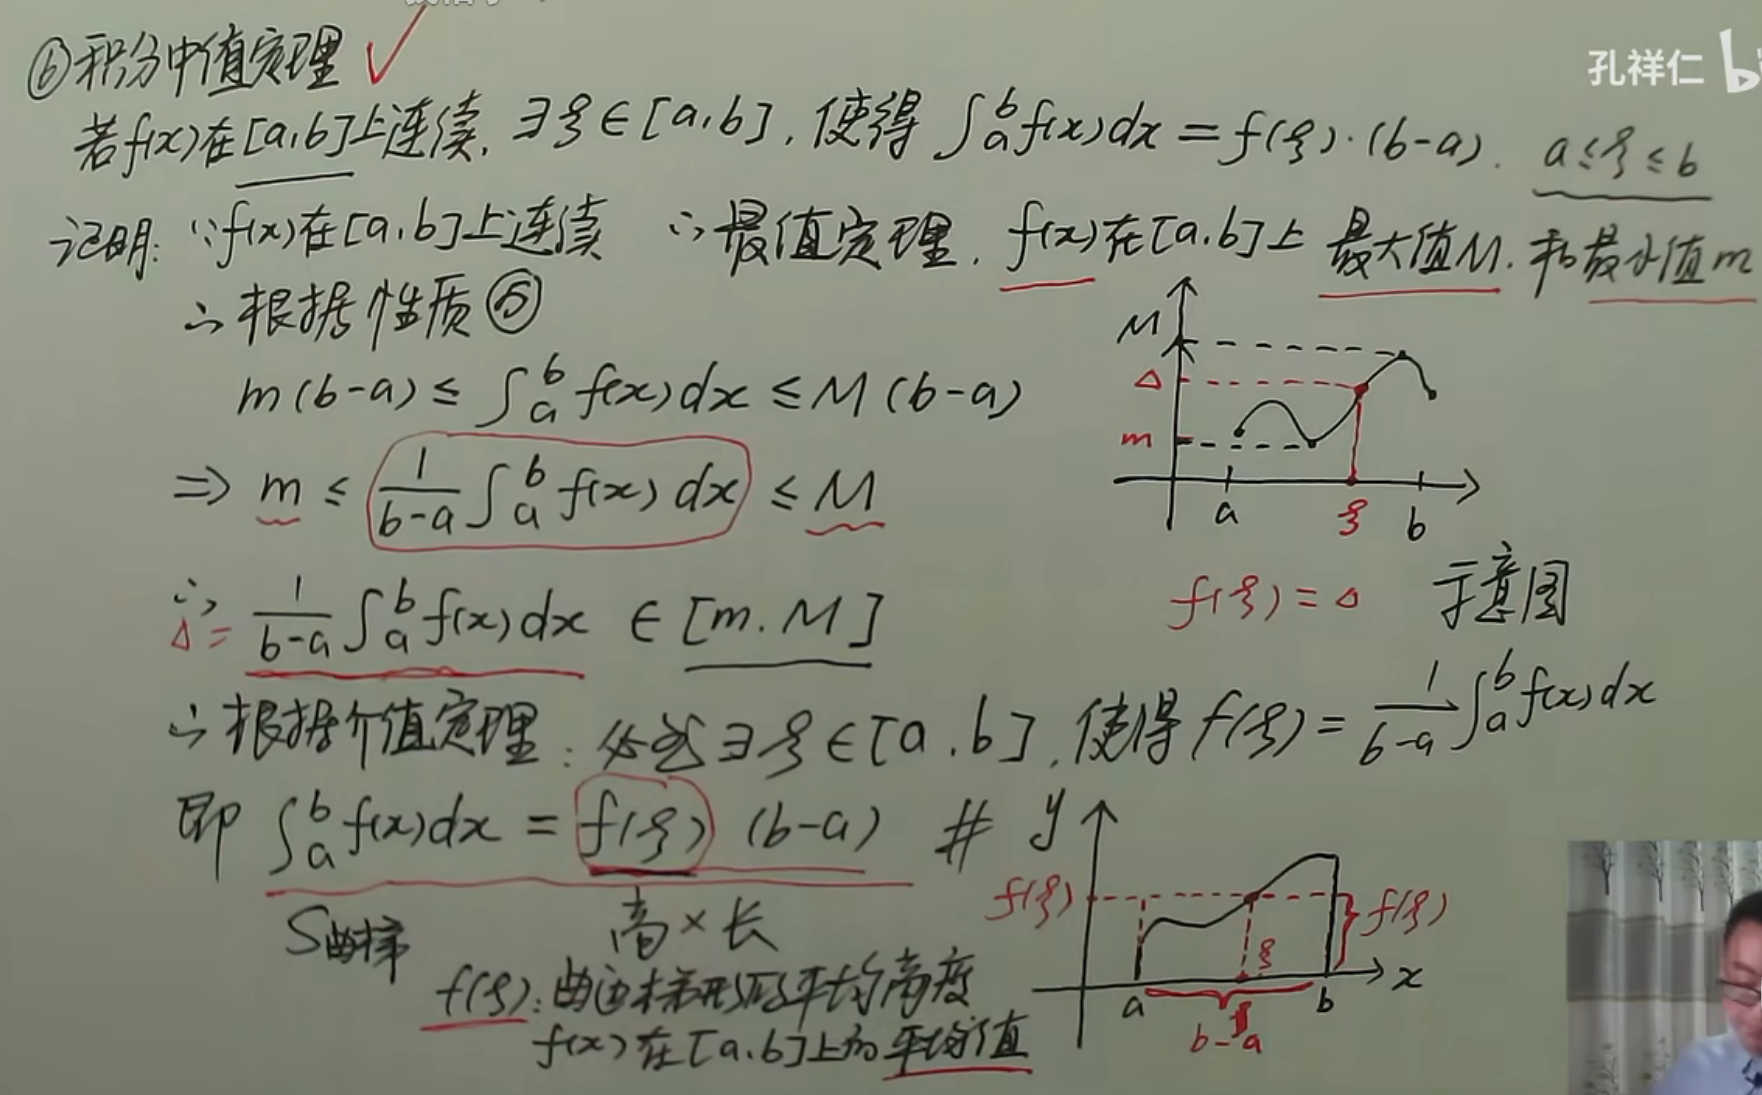 孔祥仁 b
⑥积分中值定理 ✓
若f(x)在[a,b]上连续, ∃ξ∈[a,b], 使得 ∫ₐᵇf(x)dx = f(ξ)·(b-a). a≤ξ≤b
证明: ∵f(x)在[a,b]上连续 ∴最值定理, f(x)在[a,b]上 最大值M. 和最小值m
∴根据性质⑤
m(b-a) ≤ ∫ₐᵇ f(x)dx ≤ M(b-a)
⇒ m ≤ 1/(b-a) ∫ₐᵇ f(x)dx ≤ M
∴ Δ= 1/(b-a) ∫ₐᵇ f(x)dx ∈ [m. M]
M
Δ
m
a ξ b
f(ξ) = Δ 示意图
∴根据介值定理: 必然∃ξ∈[a,b], 使得 f(ξ) = 1/(b-a) ∫ₐᵇ f(x)dx
即 ∫ₐᵇ f(x)dx = f(ξ) (b-a) #
S曲梯 高×长
f(ξ): 曲边梯形的平均高度
f(x)在[a,b]上的平均值
y
f(ξ) ξ f(ξ)
a b x
b-a